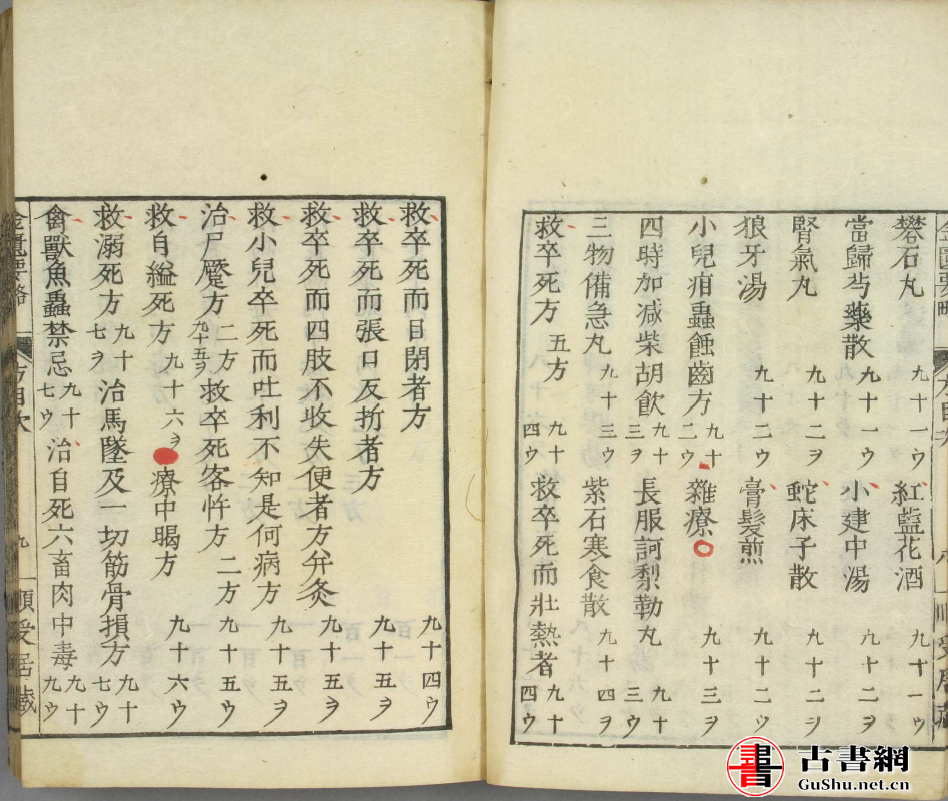 礬石丸 九十一ウ 紅藍花酒 九十一ウ
當歸芍藥散 九十一ウ 小建中湯 九十二ヲ
腎氣丸 九十二ヲ 蛇床子散 九十二ヲ
狼牙湯 九十二ウ 膏髮煎 九十二ウ
小兒疳蟲蝕齒方 九十二ウ 雜療 九十三ヲ
四時加减柴胡飲 九十三ヲ 長服訶梨勒丸 九十三ウ
三物備急丸 九十三ウ 紫石寒食散 九十四ウ
救卒死方 五方 九十四ウ 救卒死而壯熱者 九十四ウ
救卒死而目閉者方 九十四ウ
救卒死而張口反折者方 九十五ヲ
救卒死而四肢不收失便者方并灸 九十五ウ
救小兒卒死而吐利不知是何病方 九十五ウ
治尸蹷方 二方 九十五ヲ 救卒死客忤方 二方 九十五ウ
救自縊死方 九十六ヲ 療中暍方 九十六ウ
救溺死方 九十七ヲ 治馬墜及一切筋骨損方 九十七ウ
禽獸魚蟲禁忌 九十七ウ 治自死六畜肉中毒 九十九ウ
金匱要略 方目次 九 順受居藏
古書網
GuShu.net.cn